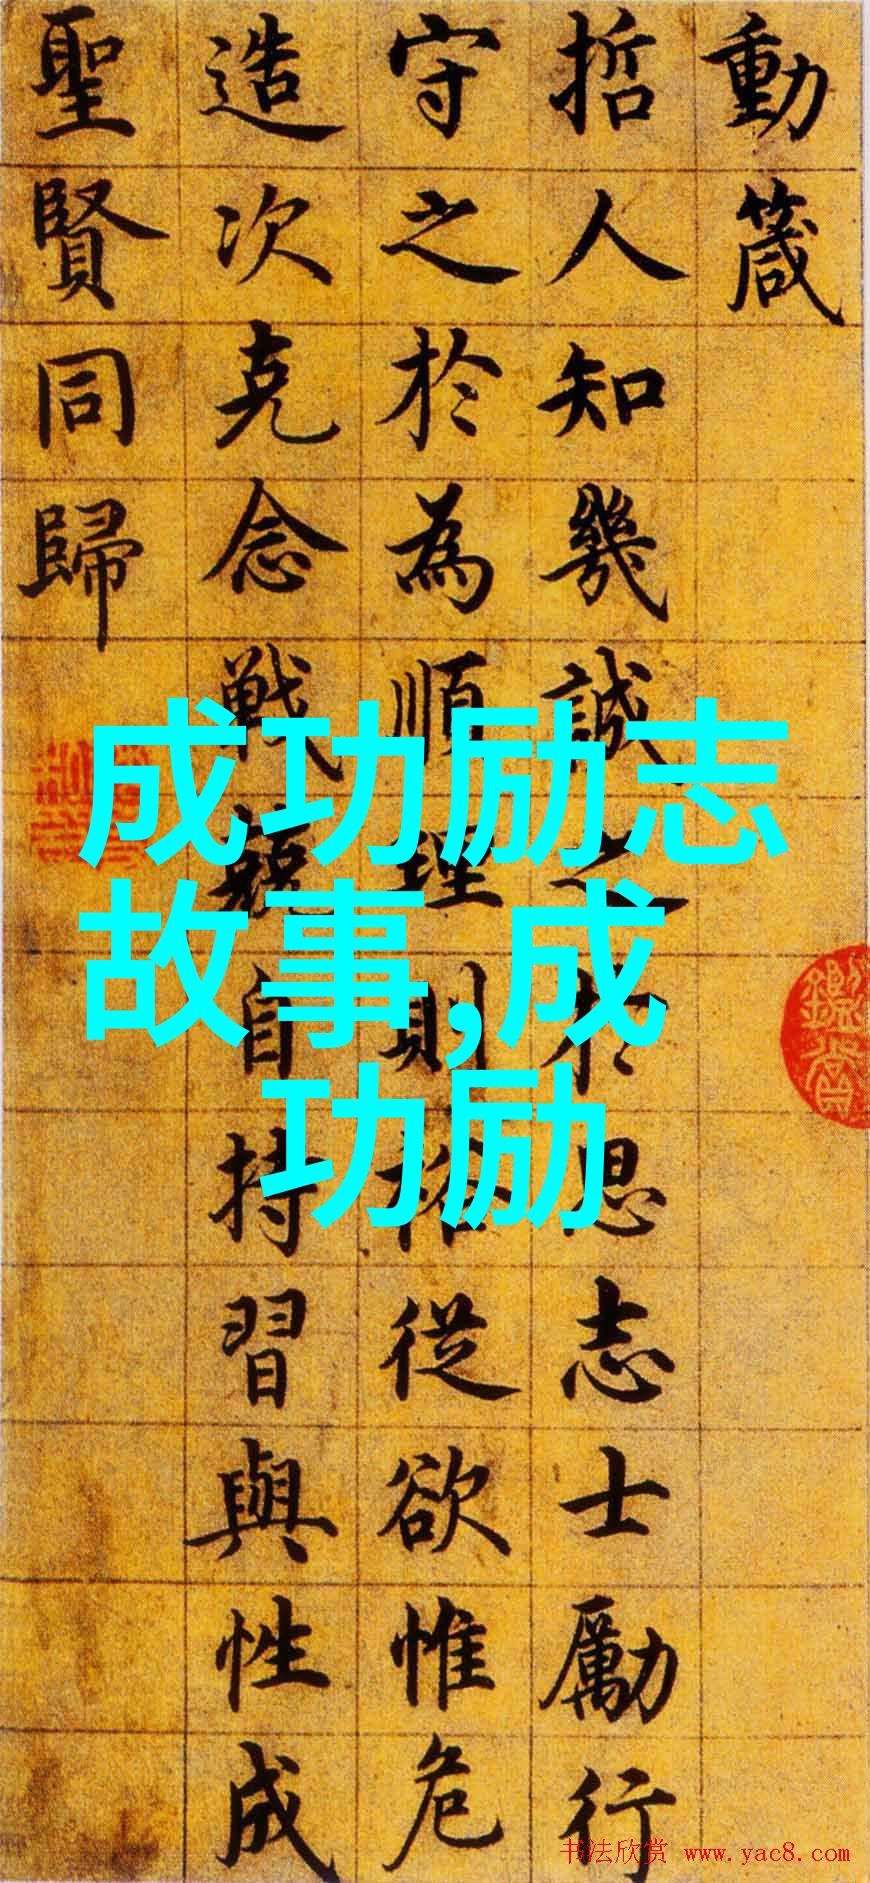 動箴
哲人知幾誠之於思志士勵行
守之於為順理則裕從欲惟危
造次克念戰兢自持習與性成
聖賢同歸
成功励志
故事,成
功励
书法欣赏 www.yac8.com